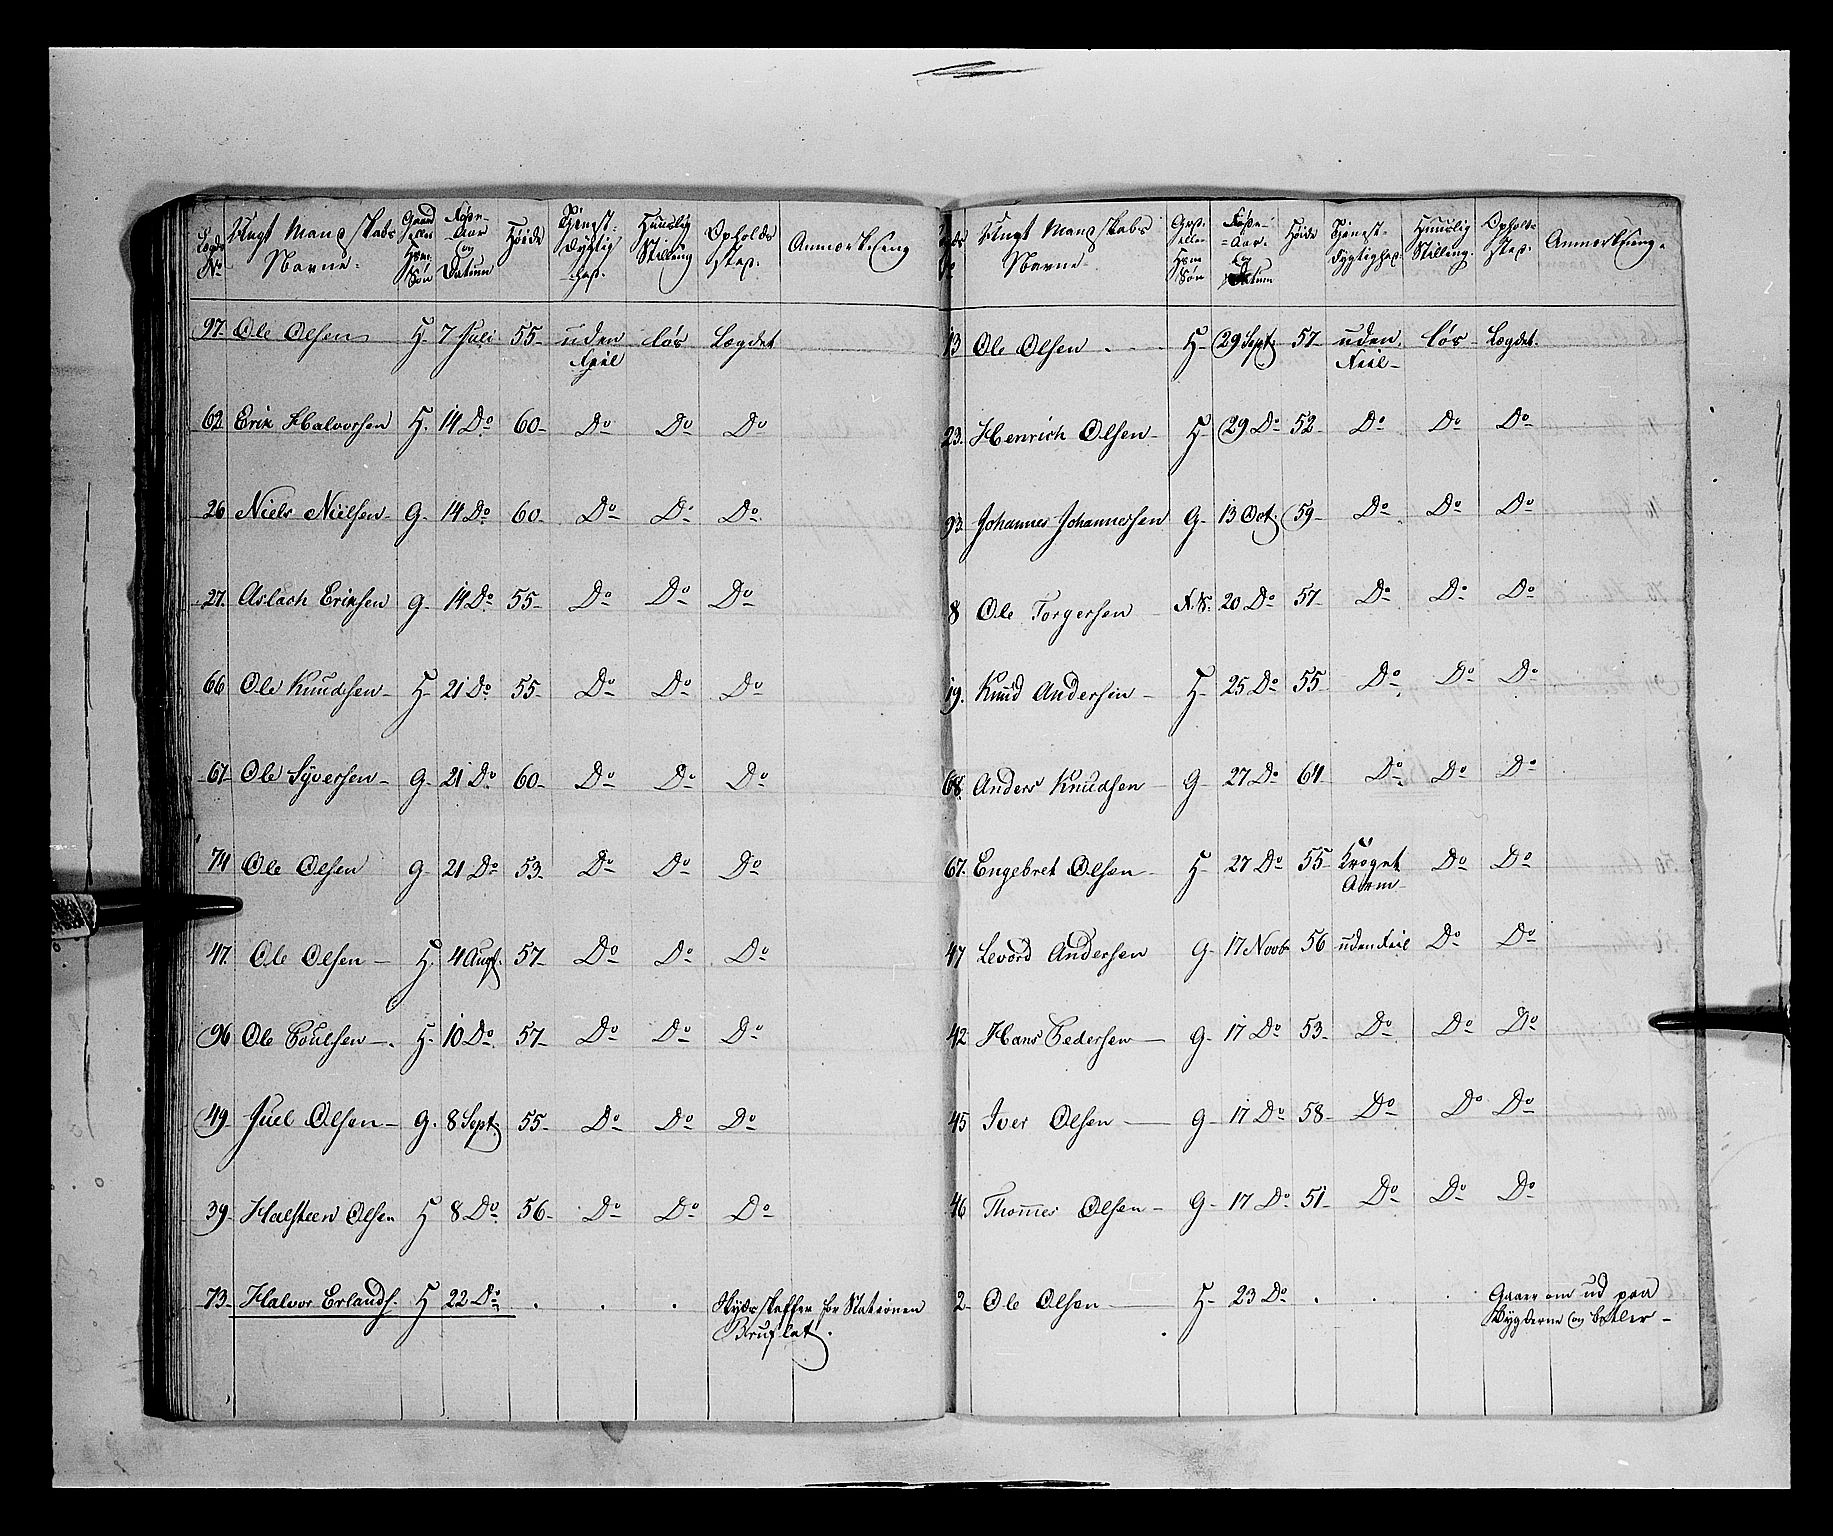 Lægds No | Ungt Mandskabs Navne. | Gaard eller Huusm. Søn | Føde-Aar og Datum | Høide | Tjenst-dygtighed. | Huuslig Stilling | Opholds sted. | Anmærkning
97. Ole Olsen H. 7 Juli 55- uden Feil lös Lægdet
62 Erik Halvorsen H. 14 Do 60- Do Do Do
26 Niels Nielsen- G- 14 Do 60- Do Do Do
27. Aslach Eriksen G- 14 Do 55- Do Do Do
66 Ole Knudsen- H- 21 Do 55- Do Do Do
67- Ole Syversen- G- 21 Do 60- Do Do Do
74 Ole Olsen G- 21 Do 53- Do Do Do
47. Ole Olsen- H. 4 Augt. 57- Do Do Do
96 Ole Poulsen-. H- 10 Do 57- Do Do Do
49. Juel Olsen- G. 8 Sept. 55- Do Do Do
39- Halsteen Olsen H 8 Do 56- Do Do Do
73- Halvor Erlands. H 22 Do . . . Skydsskaffer for Stationen
Bruflat.
Ungt Mandskabs Navne | eller Huusm Søn | Føde-Aar. og Datum | Høide | Tjenst-dygtighed. | Huuslig Stilling. | Opholds sted. | Anmærkning.
13 Ole Olsen. - H- 29 Sept. 57- uden Feil- lös- Lægdet.
23. Henrich Olsen- H- 29 Do 52- Do Do Do
93. Johannes Johannessen G- 13 Oct. 59- Do Do Do
8 Ole Torgersen 20 Do 57- Do Do Do
19. Knud Andersen- H- 25 Do 55- Do Do Do
68. Anders Knudsen G- 27 Do 64- Do Do Do
67. Engebret Olsen- H- 27 Do 55- Kroget Arm- Do Do
47 Levord Andersen G- 17 Novb 56 uden Feil Do Do
42 Hans Pedersen- G- 17 Do 53- Do Do Do
45 Iver Olsen- G- 17 Do 58- Do Do Do
46 Thomes Olsen- G- 17 Do 51- Do Do Do
2- Ole Olsen- H- 23 Do . . . Gaaer om ud paa
Bygderne og betler-